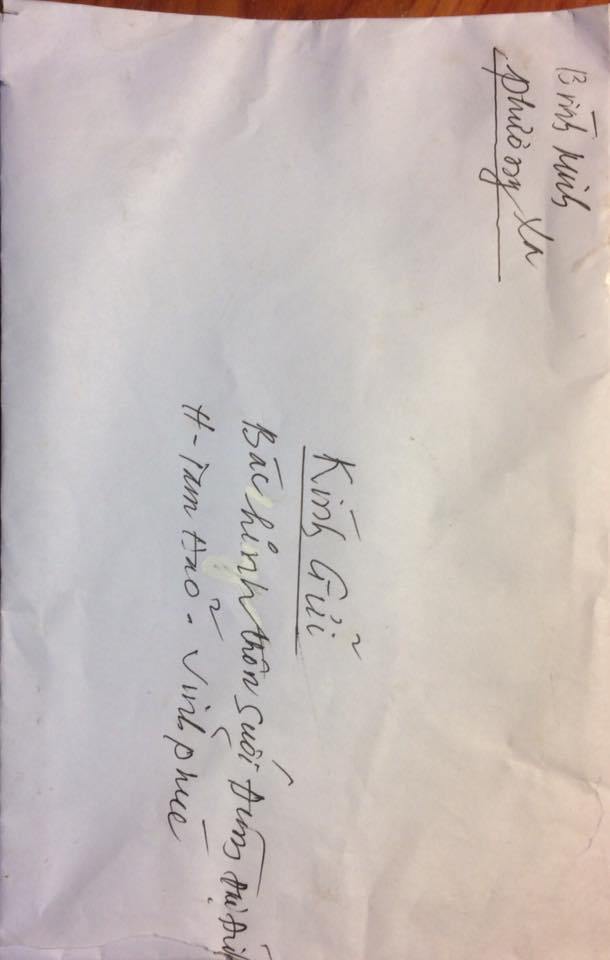 Bình Minh
Phương Xá
Kính Gửi
Bác hinh thôn Suối Đùm Đại Đình
H - Tam Đảo - Vĩnh phúc